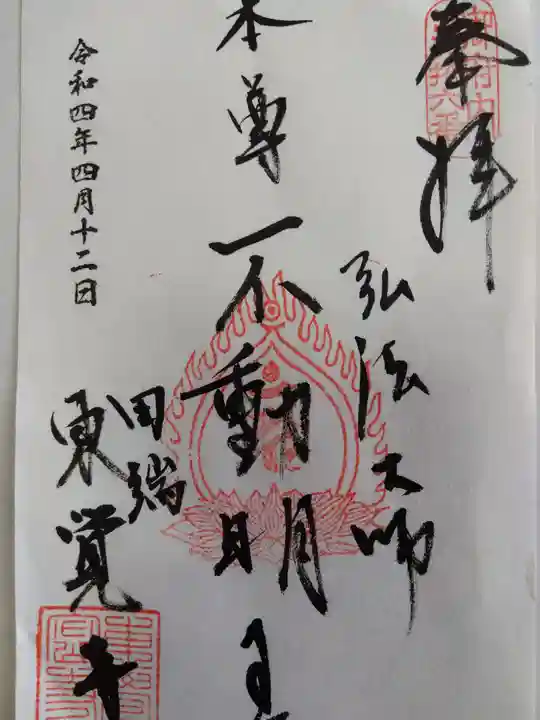 奉拝
弘法大師
本尊
不動明王
田端
東覚寺
令和四年四月十二日